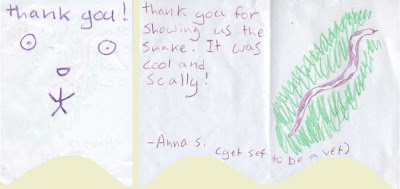 thank you!
thank you for
showing us the
snake. It was
cool and
scally!
-Anna S.
(get set to be a vet)